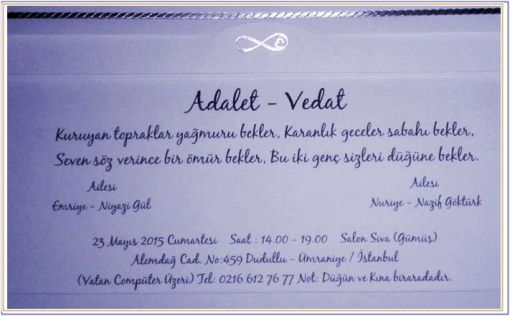 Adalet - Vedat
Kuruyan topraklar yağmuru bekler, Karanlık geceler sabahı bekler,
Seven söz verince bir ömür bekler, Bu iki genç sizleri düğüne bekler.
Ailesi
Emriye - Niyazi Gül
Ailesi
Nuriye - Nazif Göktürk
23 Mayıs 2015 Cumartesi Saat : 14.00 - 19.00 Salon Siva (Gümüş)
Alemdağ Cad. No:459 Dudullu - Ümraniye / İstanbul
(Vatan Computer Üzeri) Tel: 0216 612 76 77 Not: Düğün ve Kına biraradadır.